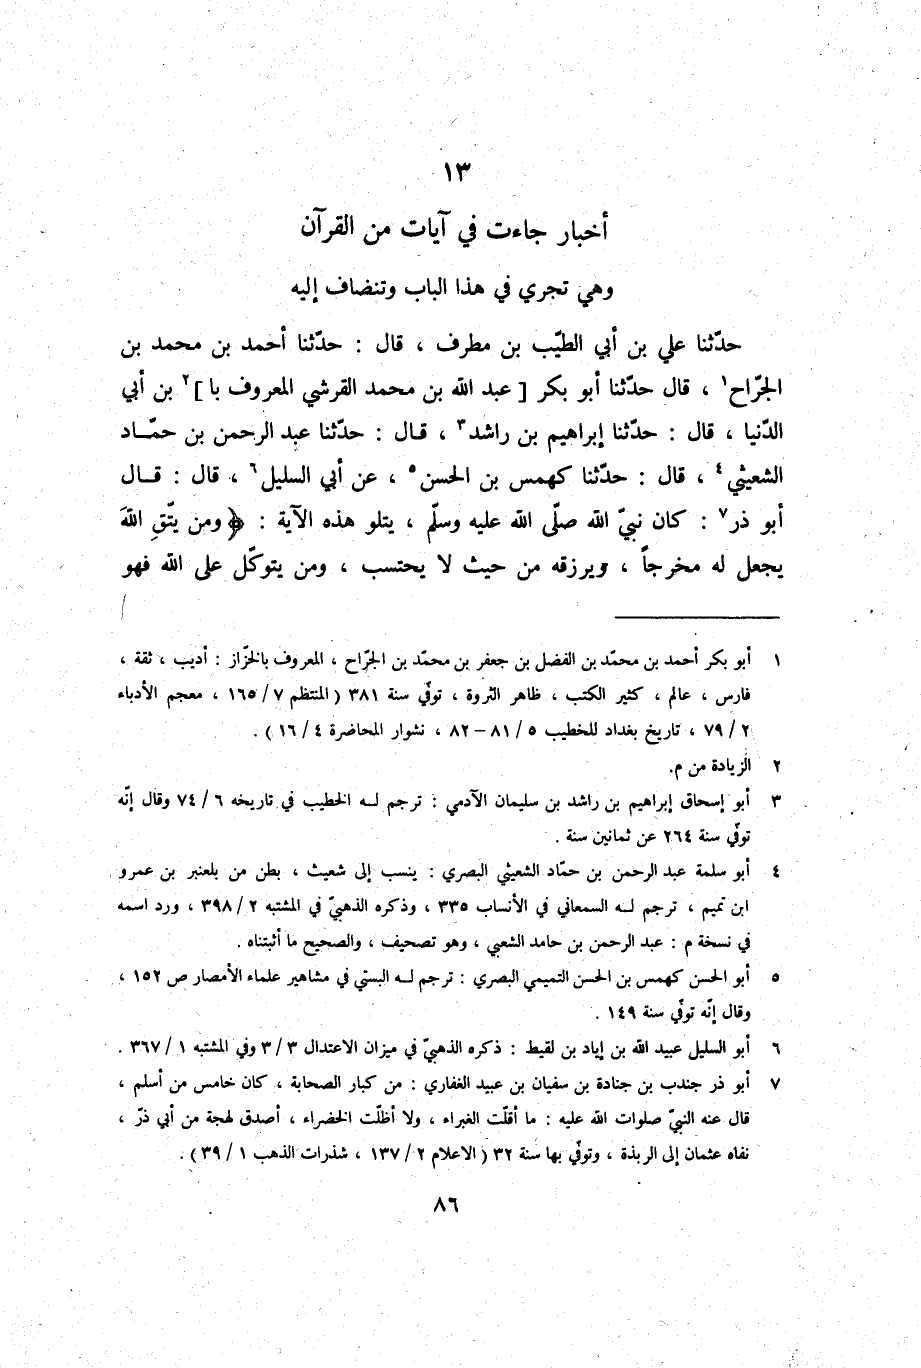 ١٣
أخبار جاءت في آيات من القرآن
وهي تجري في هذا الباب وتنضاف إليه
حدّثنا علي بن أبي الطيّب بن مطرف ، قال : حدّثنا أحمد بن محمد بن
الجرّاح١ ، قال حدّثنا أبو بكر [ عبد الله بن محمد القرشي المعروف با ]٢ بن أبي
الدّنيا ، قال : حدّثنا إبراهيم بن راشد٣ ، قال : حدّثنا عبد الرحمن بن حمّاد
الشعيثي٤ ، قال : حدّثنا كهمس بن الحسن٥ ، عن أبي السليل٦ ، قال : قال
أبو ذر٧ : كان نبيّ الله صلّى الله عليه وسلّم ، يتلو هذه الآية : ﴿ ومن يتّقِ اللهَ
يجعل له مخرجاً ، ويرزقه من حيث لا يحتسب ، ومن يتوكّل على الله فهو
١ أبو بكر أحمد بن محمّد بن الفضل بن جعفر بن محمّد بن الجرّاح ، المعروف بالخزّاز : أديب ، ثقة ،
فارس ، عالم ، كثير الكتب ، ظاهر الثروة ، توفّي سنة ٣٨١ ( المنتظم ٧ / ١٦٥ ، معجم الأدباء
٢ / ٧٩ ، تاريخ بغداد للخطيب ٥ / ٨١ – ٨٢ ، نشوار المحاضرة ٤ / ١٦ ) .
٢ الزيادة من م.
٣ أبو إسحاق إبراهيم بن راشد بن سليمان الآدمي : ترجم له الخطيب في تاريخه ٦ / ٧٤ وقال إنّه
توفّي سنة ٢٦٤ عن ثمانين سنة .
٤ أبو سلمة عبد الرحمن بن حمّاد الشعيثي البصري : ينسب إلى شعيث ، بطن من بلعنبر بن عمرو
ابن تميم ، ترجم له السمعاني في الأنساب ٣٣٥ ، وذكره الذهبيّ في المشتبه ٢ / ٣٩٨ ، ورد اسمه
في نسخة م : عبد الرحمن بن حامد الشعبي ، وهو تصحيف ، والصحيح ما أثبتناه .
٥ أبو الحسن كهمس بن الحسن التميمي البصري : ترجم له البستي في مشاهير علماء الأمصار ص ١٥٢ ،
وقال إنّه توفّي سنة ١٤٩ .
٦ أبو السليل عبيد الله بن إياد بن لقيط : ذكره الذهبيّ في ميزان الاعتدال ٣ / ٣ وفي المشتبه ١ / ٣٦٧ .
٧ أبو ذر جندب بن جنادة بن سفيان بن عبيد الغفاري : من كبار الصحابة ، كان خامس من أسلم ،
قال عنه النبيّ صلوات الله عليه : ما أقلّت الغبراء ، ولا أظلّت الخضراء ، أصدق لهجة من أبي ذرّ ،
نفاه عثمان إلى الربذة ، وتوفّي بها سنة ٣٢ ( الاعلام ٢ / ١٣٧ ، شذرات الذهب ١ / ٣٩ ) .
٨٦